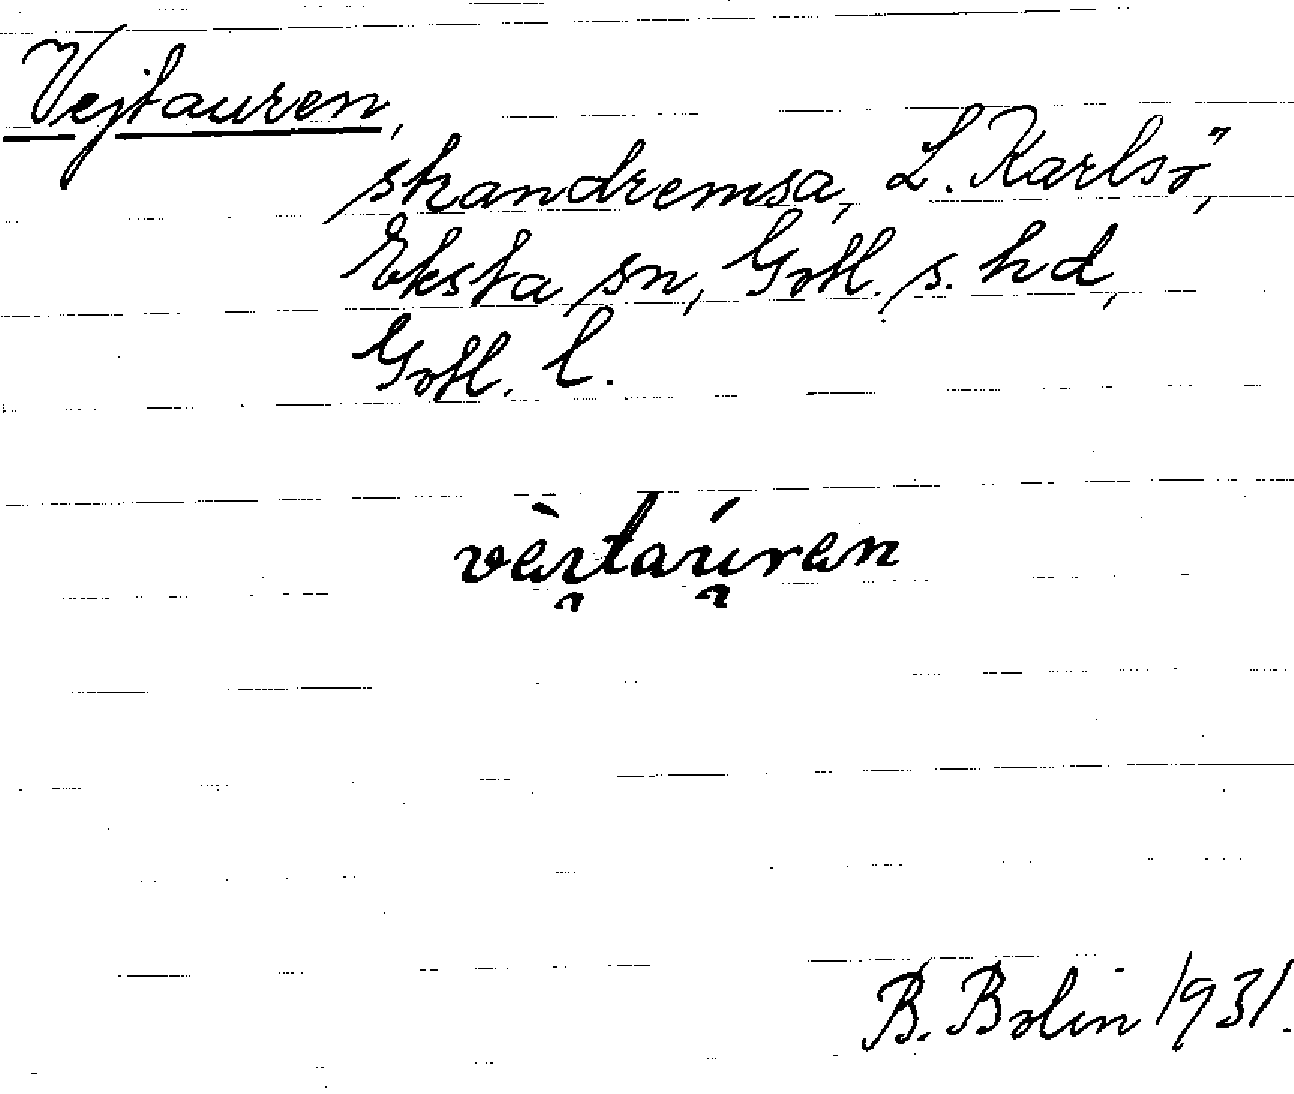 Vejtauren,
strandremsa, L. Karlsö,
Eksta sn, Gotl. s. hd,
Gotl. l.
vèɪ̯taú̯ren
B. Bolin 1931.